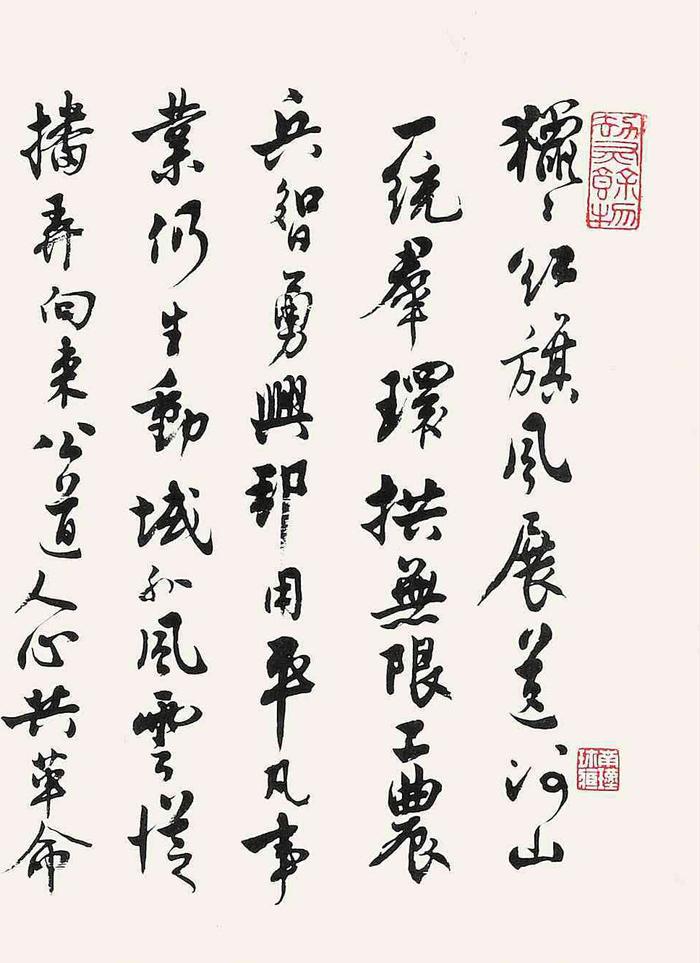 獵〻红旗风展送河山
一統羣環拱無限工農
兵智勇興邦用平凡事
業仍生動域外風雲
播弄向来公道人心共革命